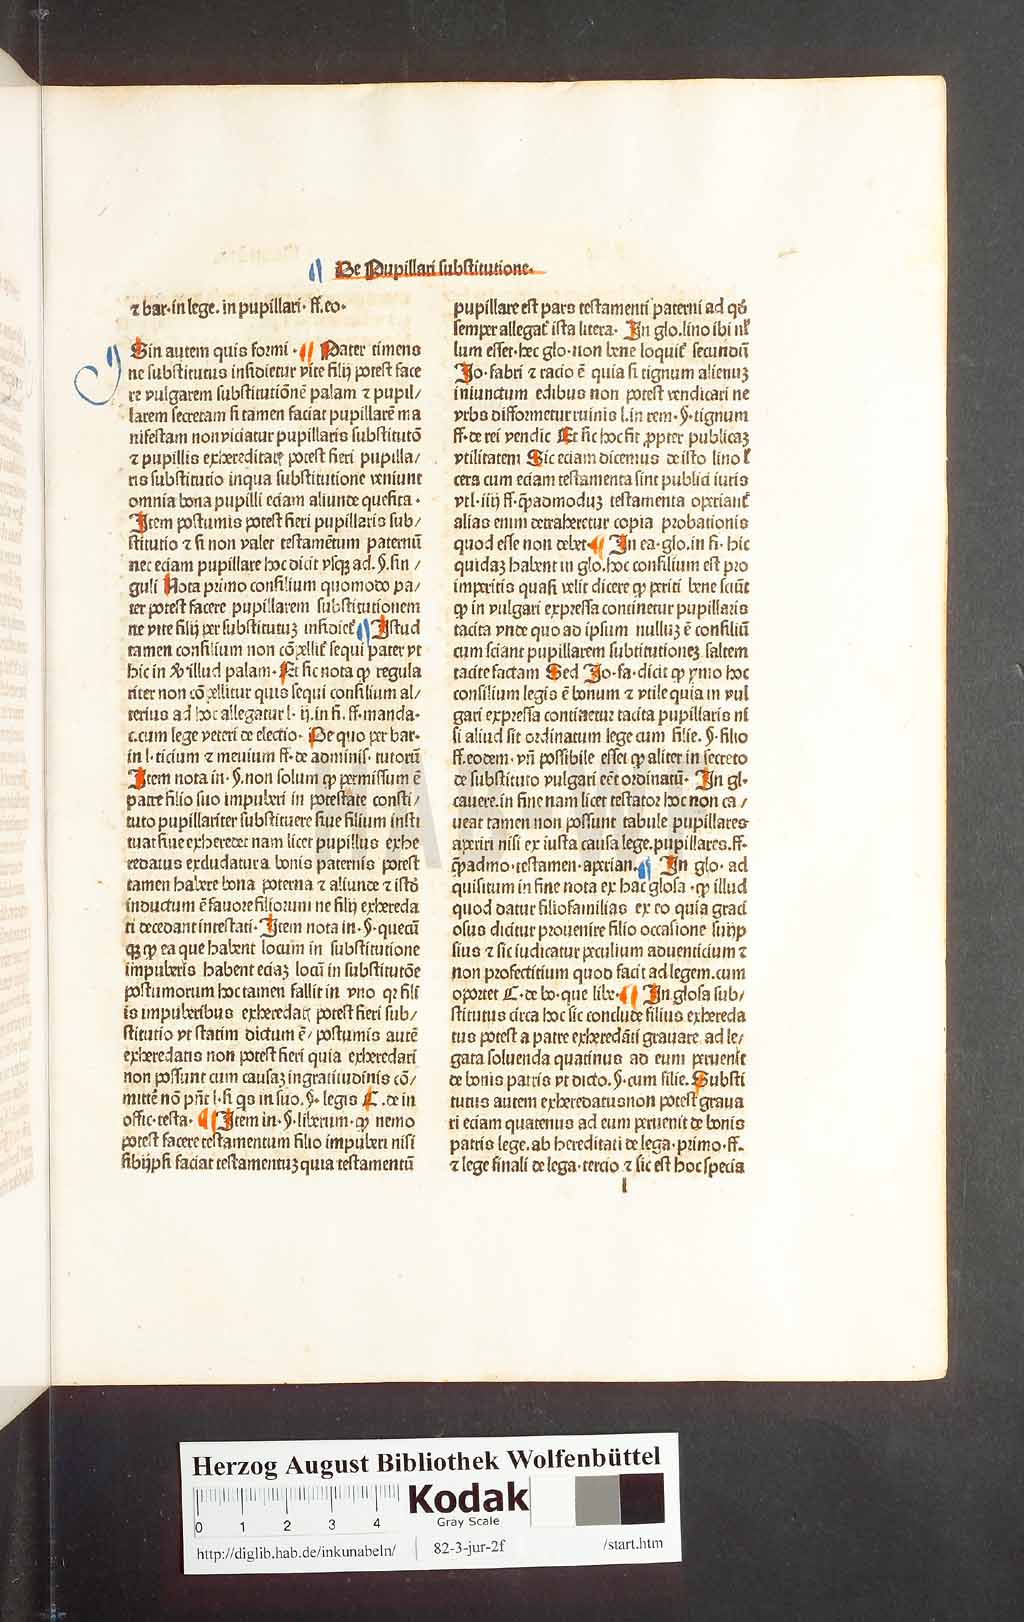 De Pupillari substitutione.
⁊ bar. in lege. in pupillari. ff. eo.
Sin autem quis formi. Pater timens
ne substitutus insidietur vite filij potest face
re vulgarem substitutiōnē palam ⁊ pupil/
larem secretam si tamen faciat pupillarē ma
nifestam non viciatur pupillaris substitutō
⁊ pupillis exhereditatꝭ potest fieri pupilla/
ris substitutio in qua substitutione veniunt
omnia bona pupilli eciam aliunde quesita.
Item postumis potest fieri pupillaris sub/
stitutio ⁊ si non valet testamētum paternū
nec eciam pupillare hoc dicit vsqꝫ ad. §. sin/
guli Nota primo consilium quomodo pa/
ter potest facere pupillarem substitutionem
ne vite filij per substitutuꝫ insidieť Istud
tamen consilium non cōpelliť sequi pater vt
hic in ꝟ illud palam. Et sic nota ꝙ regula
riter non cōpellitur quis sequi consilium al/
terius ad hoc allegatur l. ij. in fi. ff. manda.
c. cum lege veteri de electio. De quo per bar.
in l. ticium ⁊ meuium ff. de adminis. tutorū
Item nota in. §. non solum ꝙ permissum ē
patre filio suo impuberi in potestate consti/
tuto pupillariter substituere siue filium insti
tuat siue exheredet nam licet pupillus exhe
redatus excludatur a bonis paternis potest
tamen habere bona poterna ⁊ aliunde ⁊ istō
inductum ē fauore filiorum ne filij exhereda
ti decedant intestati. Item nota in. §. quecū
qꝫ ꝙ ea que habent locum in substitutione
impuberis habent eciaꝫ locū in substitutōe
postumorum hoc tamen fallit in vno qꝛ filī
is impuberibus exheredatꝭ potest fieri sub/
stitutio vt statim dictum ē/ postumis autē
exheredatis non potest fieri quia exheredari
non possunt cum causaꝫ ingratitudinis cō/
mittē nō pn̄t l. si qs in suo. §. legis C. de in
offic. testa. Item in. §. liberum. ꝙ nemo
potest facere testamentum filio impuberi nisi
sibijpsi faciat testamentuꝫ quia testamentū
pupillare est pars testamenti paterni ad qd̄
semper allegať ista litera. In glo. lino ibi nľ
lum esset. hec glo. non bene loquiť secundū
Io. fabri ⁊ racio ē quia si tignum alienuꝫ
iniunctum edibus non potest vendicari ne
vrbs difformetur ruinis l. in rem. §. tignum
ff. de rei vendic Et sic hoc fit ꝓpter publicaꝫ
vtilitatem Sic eciam dicemus de isto lino ľ
cera cum eciam testamenta sint publici iuris
vt l. iiij ff. q̄admoduꝫ testamenta operianť
alias enim detraheretur copia probationis
quod esse non debet In ea. glo. in fi. hic
quidaꝫ habent in glo. hoc consilium est pro
imperitis quasi velit dicere ꝙ periti bene sciūt
ꝙ in vulgari expressa continetur pupillaris
tacita vnde quo ad ipsum nulluꝫ ē consiliū
cum sciant pupillarem subtitutioneꝫ saltem
tacite factam Sed Io. fa. dicit ꝙ ymo hoc
consilium legis ē bonum ⁊ vtile quia in vul
gari expressa continetur tacita pupillaris ni
si aliud sit ordinatum lege cum filie. §. filio
ff. eodem. vn̄ possibile esset ꝙ aliter in secreto
de substituto vulgari eēt ordinatū. In gl.
cauere. in fine nam licet testator hoc non ca/
ueat tamen non possunt tabule pupillares
aperiri nisi ex iusta causa lege. pupillares. ff.
q̄admo. testamen. aperian. In glo. ad
quisitum in fine nota ex hac glosa. ꝙ illud
quod datur filiofamilias ex eo quia graci
osus dicitur prouenire filio occasione suijp
sius ⁊ sic iudicatur peculium aduenticium ⁊
non profectitium quod facit ad legem. cum
oportet C. de bo. que libe. In glosa sub/
stitutus circa hoc sic conclude filius exhereda
tus potest a patre exheredāti grauare ad le/
gata soluenda quatinus ad eum peruenīt
de bonis patris vt dicto. §. cum filie. Substi
tutus autem exheredatus non potest graua
ri eciam quatenus ad eum peruenit de bonis
patris lege. ab hereditati de lega. primo. ff.
⁊ lege finali de lega. tercio ⁊ sic est hoc specia
l
HAB WF
Herzog August Bibliothek Wolfenbüttel
0 1 2 3 4
Kodak
Gray Scale
http://diglib.hab.de/inkunabeln/ 82-3-jur-2f /start.htm